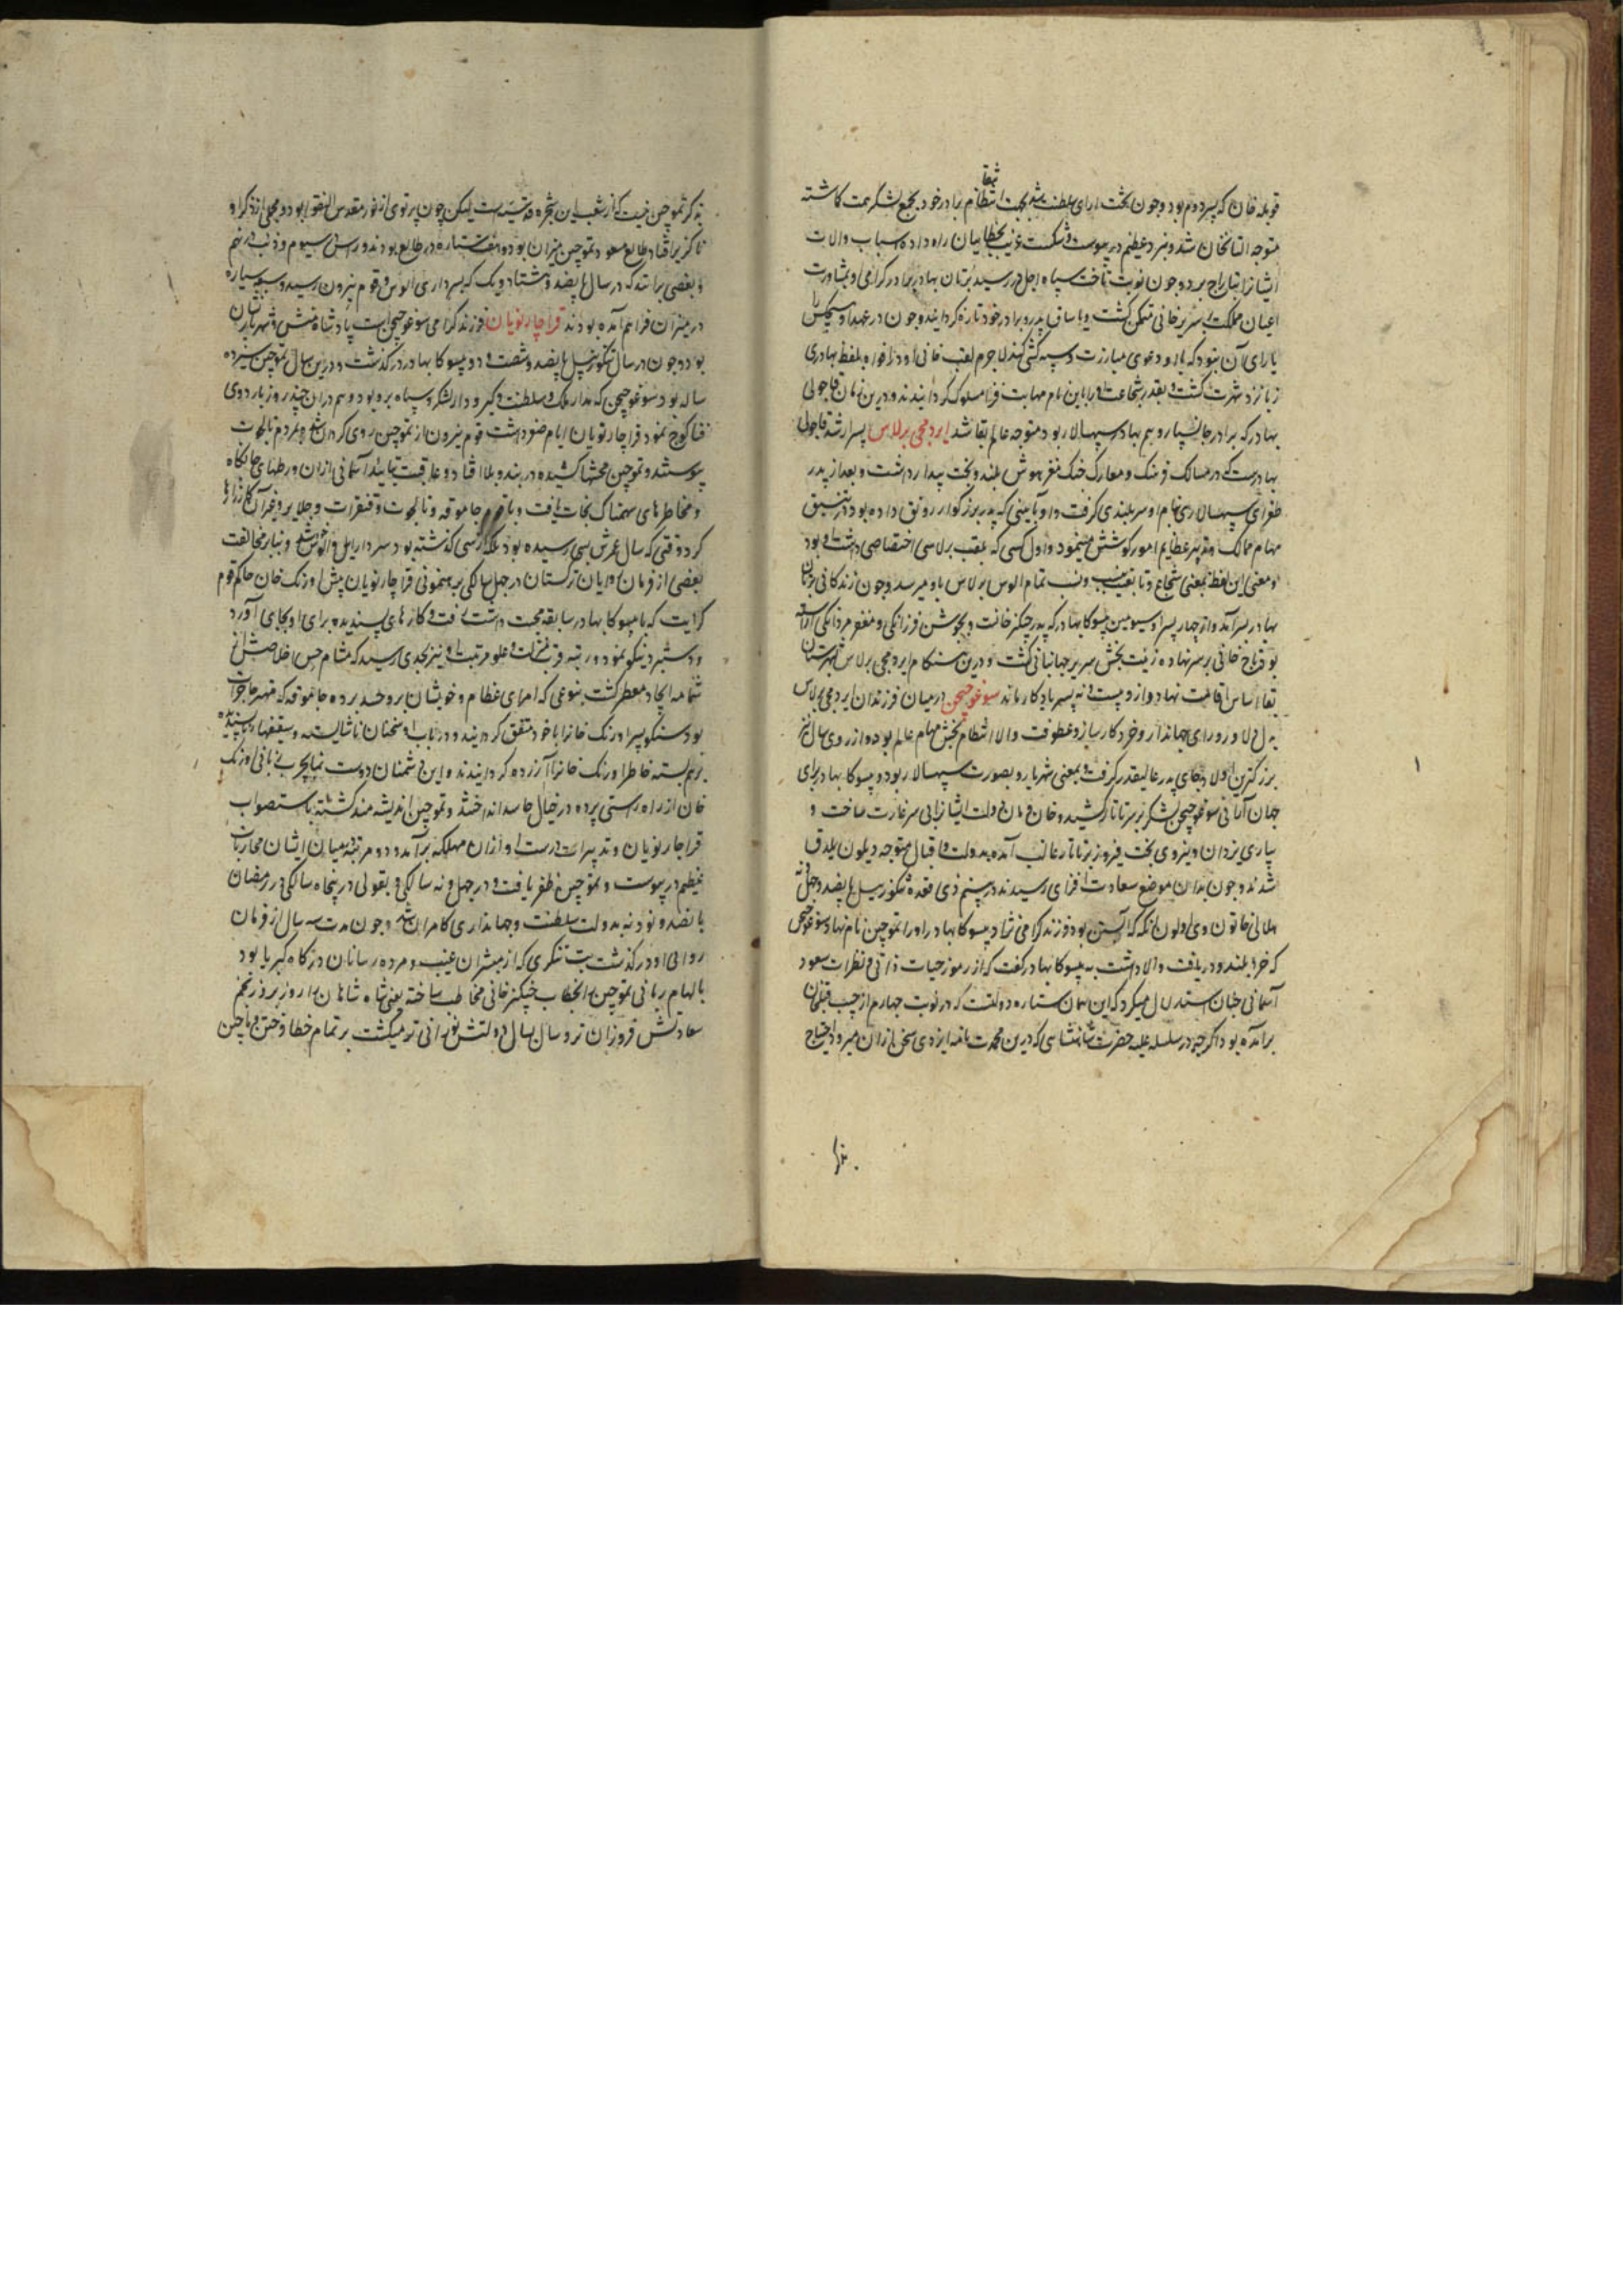 قوبله خان که پسر دوم بود و چون تخت آرای سلطنت شد بجهت انتقام برادر خود بجمع لشکر همت کماشته
متوجه التانخان شد و نبرد عظیم در پیوست و شکست غریب بخطاییان راه داده اسباب و الات
ایشانرا بتاراج برد و چون نوبت تاخت سپاه اجل در رسید برتان بهادر برادر کرامی او بمشاورت
اعیان مملکت بر سریر خانی متمکن کشت و یاساق پدر و برادر خود تازه کردانید و چون در عهد او هیچکس را
یارای آن نبود که با او دعوی مبارزت و سپه کشی کند لاجرم لقب خانی او در افواه بلفظ بهادری
زبانزد شهرت کشت و بقدر شجاعت او را باین نام مهابت فزا مسلوک کردانیدند و درین زمان قاجولی
بهادر که برادر جانسپار و هم بهادر سپهسالار بود متوجه عالم بقا شد ایردمجی برلاس پسر ارشد قاجولی
بهادرست که در مسالک فرهنک و معارک جنک مغز هوش بلند و بخت بیدار داشت و بعد از پدر
طغرای سپهسالاری بنام او سربلندی کرفت و او بآیینی که پدر بزرکوار رونق داده بود در تنسیق
مهام ممالک و تدبیر عظایم امور کوشش مینمود و اول کسی که بلقب برلاسی اختصاصی داشت او بود
و معنی این لفظ بمعنی شجاع و با نسب و نسب تمام الوس برلاس باو میرسد و چون زندکانی برتان
بهادر سر آمد و از چهار پسر او سیومین ییسوکا بهادر که پدر چنکیز خانست و بجوشن فرزانکی و مغفر مردانکی آراسته
بود تاج خانی بر سر نهاده زینت بخش سریر جهانبانی کشت و درین هنکام ایردمجی برلاس بشهرستان
بقا اساس اقامت نهاد و ازو بیست و نه پسر یادکار ماند سوغوجیجن از میان فرزندان ایردمجی برلاس
بدل دلاور و رای جهاندار و خرد کارساز و عطوفت والا انتظام بخش مهام عالم بود و از روی سال نیز
بزرکترین اولاد بجای پدر عالیقدر کرفت و بمعنی شهریار و بصورت سپهسالار بود و ییسوکا بهادر برای
جهان آرای سوغوجیجن لشکر بر سر تاتار کشید و خان و مان دولت ایشانرا بی سر غارت ساخت و
بیاری یزدان و نیروی بخت فیروز بر تاتار غالب آمده بدولت و اقبال متوجه دیلون یلدق
شدند و چون بدان موضع سعادت افزای رسیدند در بیستم ذی قعده تنکوز ییل پانصد و چهل و نه
هلالی خاتون وی اولون انکه که آبستن بود فرزند کرامی نژاد ییسوکا بهادر او را تموچین نام نهاد و سوغوجیجن
که خرد بلند و دریافت والا داشت به ییسوکا بهادر کفت که از رموز حیات ذاتی و نظرات سعود
آسمانی چنان استدلال میکرد که این همان ستاره دولتست که در نوبت چهارم از جیب قبلخان
برآمده بود اکرچه در سلسله علیه حضرت شاهنشاهی که درین محمدت نامه ایزدی سخن ازان میرود احتیاج
بذکر
بذکر تموچین نیست که از شعب این شجره قدسیه است لیکن چون پرتوی از نور مقدس النقوا بود و مجملی از ذکر او
ناکزیر افتاد طالع مسعود تموچین میزان بود و هفت ستاره در طالع بودند و راس در سیوم و ذنب در نهم
و بعضی برانند که در سال پانصد و هشتاد و یک که بسرداری الوس و قوم نیرون رسید و سبعه سیاره
در میزان فراهم آمده بودند قراچار نویان فرزند کرامی سوغوجیجن است پادشاه منش و شهریار نشان
بود و چون در سال تنکوز ییل پانصد و شصت و دو ییسوکا بهادر درکذشت و درین سال تموچین سیزده
ساله بود سوغوجیجن که مدار ملک و سلطنت و کیرودار لشکر و سپاه برو بود و هم دران چند روز باردوی
فنا کوچ نمود قراچار نویان ایام صغر داشت قوم نیرون از تموچین روی کردان شده و مردم تایجوت
پیوستند و تموچین محنتها کشیده در بند و بلا افتاد و عاقبت بتایید آسمانی ازان ورطهای جانکاه
و مخاطرهای سهمناک نجات یافت و با قوم جاموقه و تایجوت و قنقرات و جلایر و غیر آن کارزارها
کرد وقتی که سال عمرش بسی رسیده بود بلکه از سی کذشته بود سردار ایل و الوس خویش شده و بنابر مخالفت
بعضی از فرمان روایان ترکستان در چهل سالکی برهنمونی قراچار نویان پیش اورنک خان حاکم قوم
کرایت که با ییسوکا بهادر سابقه محبت داشت رفت و کارهای پسندیده برای او بجای آورد
و دستبرد نیکو نمود و رتبه قرب منزلت و علو مرتبت او نیز بحدی رسید که مشام حس اخلاصش از
شمامه اتحاد معطر کشت بنوعی که امرای عظام و خویشان برو حسد برده جاموقه که مهتر جاجرات
بود سنکو پسر اورنک خانرا با خود متفق کردانید و در باب او سخنان ناشایسته و سقیفهای ناپسندیده
برهم بسته خاطر اورنک خانرا آزرده کردانیدند و این دشمنان دوست نما بچرب زبانی اورنک
خان از راه راستی برده در خیال فاسد انداختند و تموچین اندیشه مند کشته باستصواب
قراچار نویان و تدبیرات درست او ازان مهلکه برآمد و دو مرتبه میان ایشان محاربات
عظیم در پیوست و تموچین ظفر یافت و در چهل و نه سالکی و بقولی در پنجاه سالکی در رمضان
پانصد و نود و نه بدولت سلطنت و جهانداری کامران شد و چون مدت سه سال از فرمان
روایی او درکذشت بت تنکری که از مبشران غیب و مژده رسانان درکاه کبریا بود
بالهام ربانی تموچین را بخطاب چنکیزخانی مخاطب ساخته یعنی شاه شاهان و روز بروز نجم
سعادتش فروزان تر و سال بسال دولتش نورانی تر میکشت بر تمام خطا و ختن و ماچین